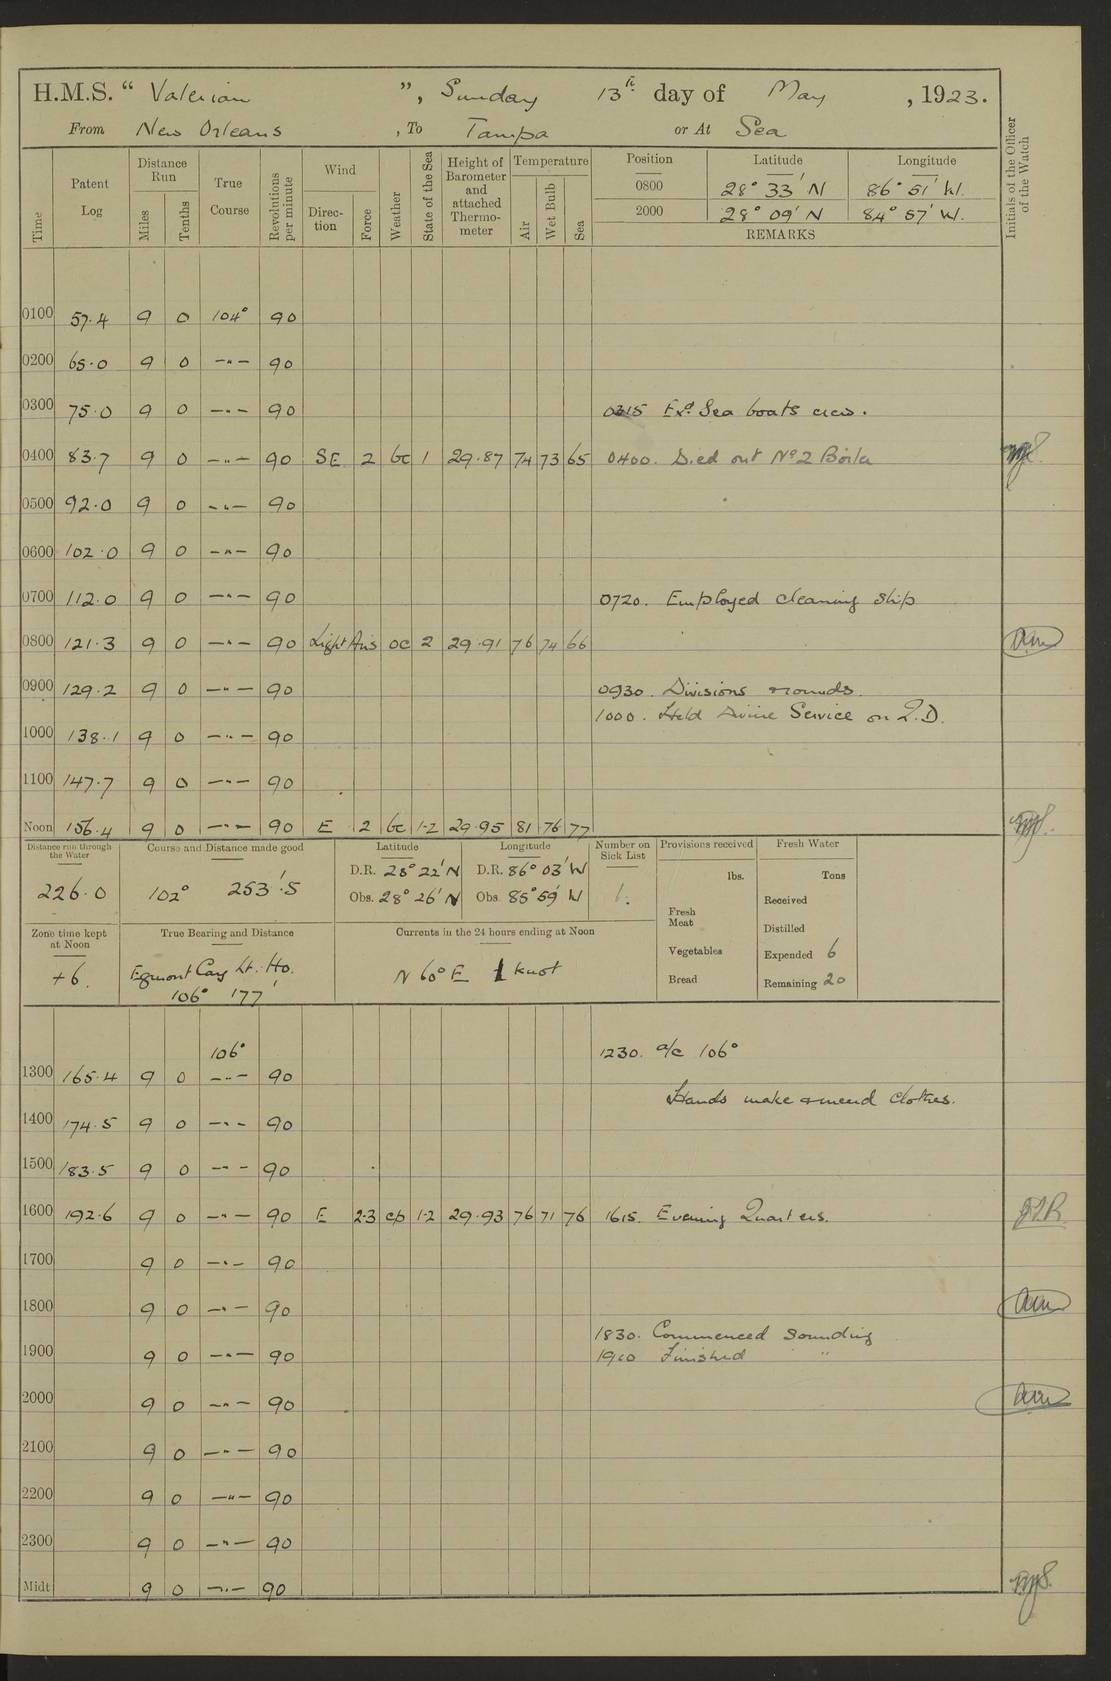 H.M.S. “ Valerian ”, Sunday 13th day of May , 1923.
From New Orleans , To Tampa or At Sea
Time
Patent Log
Distance Run
Miles
Tenths
True Course
Revolutions per minute
Wind
Direc-tion
Force
Weather
State of the Sea
Height of Barometer and attached Thermo-meter
Temperature
Air
Wet Bulb
Sea
Position Latitude Longitude
0800 28° 33' N 86° 51' W.
2000 28° 09' N 84° 57' W.
REMARKS
Initials of the Officer of the Watch
0100 57.4 9 0 104° 90
0200 65.0 9 0 —"— 90
0300 75.0 9 0 —"— 90 0315 Exd. Sea boats crew.
0400 83.7 9 0 —"— 90 SE 2 bc 1 29.87 74 73 65 0400. Died out No 2 Boiler
0500 92.0 9 0 —"— 90
0600 102.0 9 0 —"— 90
0700 112.0 9 0 —"— 90 0720. Employed cleaning ship
0800 121.3 9 0 —"— 90 Light Airs oc 2 29.91 76 74 66
0900 129.2 9 0 —"— 90 0930. Divisions & rounds.
1000. Held Divine Service on Q.D.
1000 138.1 9 0 —"— 90
1100 147.7 9 0 —"— 90
Noon 156.4 9 0 —"— 90 E 2 bc 1-2 29.95 81 76 77
Distance run through the Water
226.0
Course and Distance made good
102° 253'.5
Latitude
D.R. 28° 22' N
Obs. 28° 26' N
Longitude
D.R. 86° 03' W
Obs. 85° 59' W
Number on Sick List
1.
Provisions received
lbs.
Fresh Meat
Vegetables
Bread
Fresh Water
Tons
Received
Distilled
Expended 6
Remaining 20
Zone time kept at Noon
+6.
True Bearing and Distance
Egmont Cay Lt. Ho.
106° 177'
Currents in the 24 hours ending at Noon
N 60° E 1 knot
106° 1230. a/c 106°
1300 165.4 9 0 —"— 90
Hands make & mend clothes.
1400 174.5 9 0 —"— 90
1500 183.5 9 0 —"— 90
1600 192.6 9 0 —"— 90 E 2-3 cp 1-2 29.93 76 71 76 1615. Evening Quarters. 
1700 9 0 —"— 90
1800 9 0 —"— 90
1830. Commenced sounding
1900 9 0 —"— 90 1900 Finished "
2000 9 0 —"— 90
2100 9 0 —"— 90
2200 9 0 —"— 90
2300 9 0 —"— 90
Midt 9 0 —"— 90